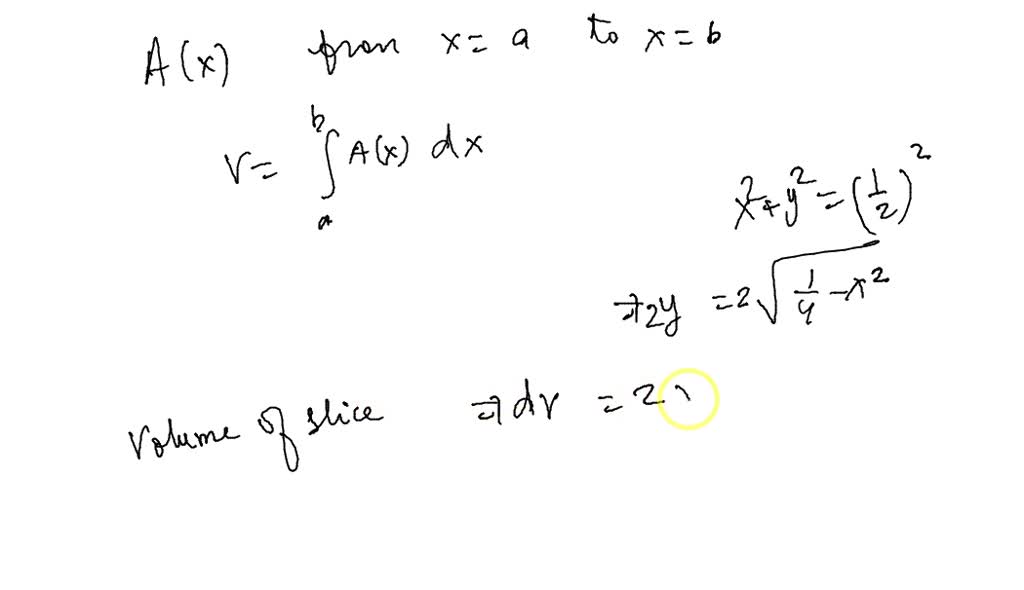 A(x) from x = a to x = b
V = ∫_a^b A(x) dx
x² + y² = (1/2)²
⇒ 2y = 2√(1/4 − x²)
Volume of slice ⇒ dV = 2